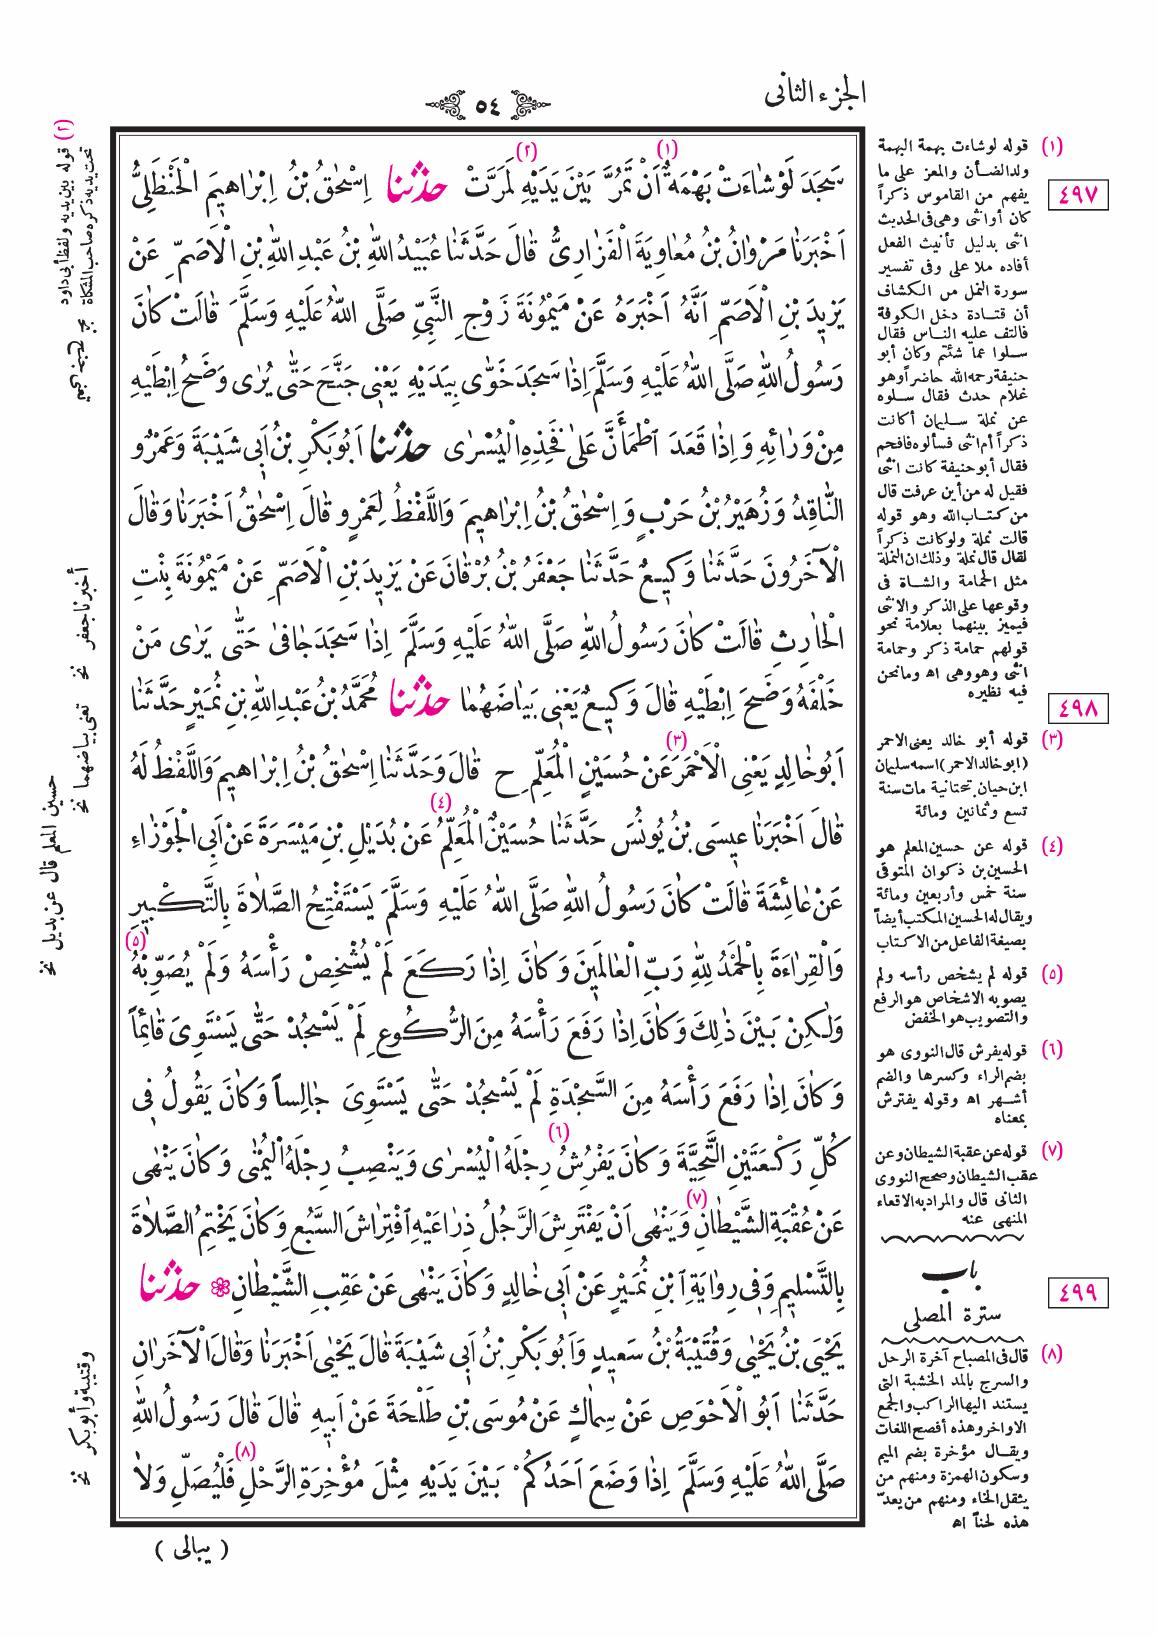 الجزء الثانى
٥٤
سَجَدَ لَوْ شَاءَتْ بَهْمَةٌ (١) اَنْ تَمُرَّ بَيْنَ يَدَيْهِ (٢) لَمَرَّتْ حدثنا اِسْحٰقُ بْنُ اِبْرَاهِيمَ الْحَنْظَلِىُّ
اَخْبَرَنَا مَرْوَانُ بْنُ مُعَاوِيَةَ الْفَزَارِىُّ قَالَ حَدَّثَنَا عُبَيْدُ اللهِ بْنُ عَبْدِ اللهِ بْنِ الْاَصَمِّ عَنْ
يَزِيدَ بْنِ الْاَصَمِّ اَنَّهُ اَخْبَرَهُ عَنْ مَيْمُونَةَ زَوْجِ النَّبِىِّ صَلَّى اللهُ عَلَيْهِ وَسَلَّمَ قَالَتْ كَانَ
رَسُولُ اللهِ صَلَّى اللهُ عَلَيْهِ وَسَلَّمَ اِذَا سَجَدَ خَوّٰى بِيَدَيْهِ يَعْنِى جَنَّحَ حَتّٰى يُرٰى وَضَحُ اِبْطَيْهِ
مِنْ وَرَائِهِ وَ اِذَا قَعَدَ اَطْمَأَنَّ عَلىٰ فَخِذِهِ الْيُسْرٰى حدثنا اَبُو بَكْرِ بْنُ اَبِى شَيْبَةَ وَعَمْرٌو
النَّاقِدُ وَ زُهَيْرُ بْنُ حَرْبٍ وَ اِسْحٰقُ بْنُ اِبْرَاهِيمَ وَاللَّفْظُ لِعَمْرٍو قَالَ اِسْحٰقُ اَخْبَرَنَا وَ قَالَ
الْآخَرُونَ حَدَّثَنَا وَكِيعٌ حَدَّثَنَا جَعْفَرُ بْنُ بُرْقَانَ عَنْ يَزِيدَ بْنِ الْاَصَمِّ عَنْ مَيْمُونَةَ بِنْتِ
الْحَارِثِ قَالَتْ كَانَ رَسُولُ اللهِ صَلَّى اللهُ عَلَيْهِ وَسَلَّمَ اِذَا سَجَدَ جَافىٰ حَتّٰى يَرٰى مَنْ
خَلْفَهُ وَضَحَ اِبْطَيْهِ قَالَ وَكِيعٌ يَعْنِى بَيَاضَهُمَا حدثنا مُحَمَّدُ بْنُ عَبْدِ اللهِ بْنِ نُمَيْرٍ حَدَّثَنَا
اَبُو خَالِدٍ يَعْنِى الْاَحْمَرَ (٣) عَنْ حُسَيْنٍ الْمُعَلِّمِ ح قَالَ وَحَدَّثَنَا اِسْحٰقُ بْنُ اِبْرَاهِيمَ وَاللَّفْظُ لَهُ
قَالَ اَخْبَرَنَا عِيسَى بْنُ يُونُسَ حَدَّثَنَا حُسَيْنٌ الْمُعَلِّمُ (٤) عَنْ بُدَيْلِ بْنِ مَيْسَرَةَ عَنْ اَبِى الْجَوْزَاءِ
عَنْ عَائِشَةَ قَالَتْ كَانَ رَسُولُ اللهِ صَلَّى اللهُ عَلَيْهِ وَسَلَّمَ يَسْتَفْتِحُ الصَّلَاةَ بِالتَّكْبِيرِ
وَالْقِرَاءَةَ بِالْحَمْدُ لِلّٰهِ رَبِّ الْعَالَمِينَ وَكَانَ اِذَا رَكَعَ لَمْ يُشْخِصْ رَأْسَهُ وَلَمْ يُصَوِّبْهُ (٥)
وَلٰكِنْ بَيْنَ ذٰلِكَ وَكَانَ اِذَا رَفَعَ رَأْسَهُ مِنَ الرُّكُوعِ لَمْ يَسْجُدْ حَتّٰى يَسْتَوِىَ قَائِماً
وَكَانَ اِذَا رَفَعَ رَأْسَهُ مِنَ السَّجْدَةِ لَمْ يَسْجُدْ حَتّٰى يَسْتَوِىَ جَالِساً وَكَانَ يَقُولُ فِى
كُلِّ رَكْعَتَيْنِ التَّحِيَّةَ وَكَانَ يَفْرُشُ (٦) رِجْلَهُ الْيُسْرٰى وَيَنْصِبُ رِجْلَهُ الْيُمْنٰى وَكَانَ يَنْهٰى
عَنْ عُقْبَةِ الشَّيْطَانِ (٧) وَيَنْهٰى اَنْ يَفْتَرِشَ الرَّجُلُ ذِرَاعَيْهِ اَفْتِرَاشَ السَّبُعِ وَكَانَ يَخْتِمُ الصَّلَاةَ
بِالتَّسْلِيمِ وَفِى رِوَايَةِ اَبْنِ نُمَيْرٍ عَنْ اَبِى خَالِدٍ وَكَانَ يَنْهٰى عَنْ عَقِبِ الشَّيْطَانِ حدثنا
يَحْيَى بْنُ يَحْيٰى وَقُتَيْبَةُ بْنُ سَعِيدٍ وَاَبُو بَكْرِ بْنُ اَبِى شَيْبَةَ قَالَ يَحْيٰى اَخْبَرَنَا وَقَالَ الْآخَرَانِ
حَدَّثَنَا اَبُو الْاَحْوَصِ عَنْ سِمَاكٍ عَنْ مُوسَى بْنِ طَلْحَةَ عَنْ اَبِيهِ قَالَ قَالَ رَسُولُ اللهِ
صَلَّى اللهُ عَلَيْهِ وَسَلَّمَ اِذَا وَضَعَ اَحَدُكُمْ بَيْنَ يَدَيْهِ مِثْلَ مُؤْخِرَةِ الرَّحْلِ (٨) فَلْيُصَلِّ وَلَا
( يبالى )
(١) قوله لو شاءت بهمة البهمة
ولد الضأن والمعز على ما
٤٩٧
يفهم من القاموس ذكراً
كان أو انثى وهى فى الحديث
انثى بدليل تأنيث الفعل
أفاده ملا على وفى تفسير
سورة النمل من الكشاف
أن قتادة دخل الكوفة
فالتف عليه الناس فقال
سلوا عما شئتم وكان أبو
حنيفة رحمه الله حاضراً وهو
غلام حدث فقال سلوه
عن نملة سليمان أكانت
ذكراً أم انثى فسألوه فافحم
فقال أبو حنيفة كانت انثى
فقيل له من أين عرفت قال
من كتاب الله وهو قوله
قالت نملة ولو كانت ذكراً
لقال قال نملة وذلك ان النملة
مثل الحمامة والشاة فى
وقوعها على الذكر والانثى
فيميز بينهما بعلامة نحو
قولهم حمامة ذكر وحمامة
انثى وهو وهى اه ومانحن
فيه نظيره
٤٩٨
(٣) قوله أبو خالد يعنى الاحمر
(ابو خالد الاحمر) اسمه سليمان
ابن حيان بتحتانية مات سنة
تسع وثمانين ومائة
(٤) قوله عن حسين المعلم هو
الحسين بن ذكوان المتوفى
سنة خمس وأربعين ومائة
ويقال له الحسين المكتب أيضاً
بصيغة الفاعل من الاكتاب
(٥) قوله لم يشخص رأسه ولم
يصوبه الاشخاص هو الرفع
والتصويب هو الخفض
(٦) قوله يفرش قال النووى هو
بضم الراء وكسرها والضم
أشهر اه وقوله يفترش
بمعناه
(٧) قوله عن عقبة الشيطان وعن
عقب الشيطان وصحح النووى
الثانى قال والمراد به الاقعاء
المنهى عنه
باب
٤٩٩
سترة المصلى
(٨) قال فى المصباح آخرة الرحل
والسرج بالمد الخشبة التى
يستند اليها الراكب والجمع
الاواخر وهذه أفصح اللغات
ويقال مؤخرة بضم الميم
وسكون الهمزة ومنهم من
يثقل الخاء ومنهم من يعدّ
هذه لحناً اه
(٢) قوله بين يديه ولفظ أبى داود
تحت يديه ذكره صاحب المشكاة
أخبرنا جعفر نخ
تعنى بياضهما نخ
حسين المعلم قال عن بديل نخ
وقتيبة وأبو بكر نخ